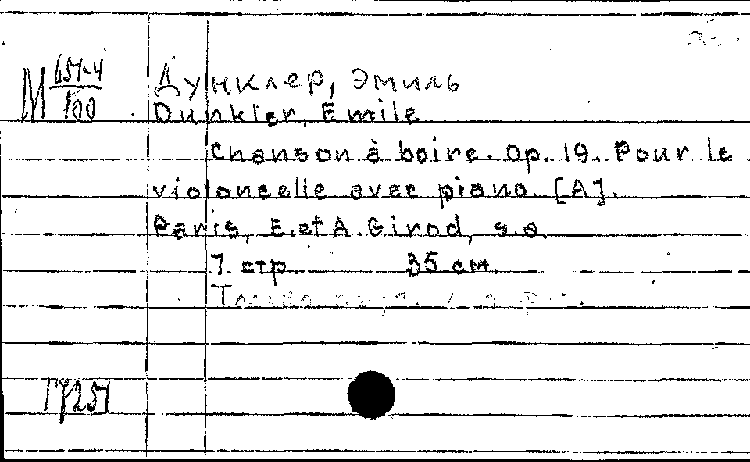 М 651-4/100
Дунклер, Эмиль
Dunkler, Emile
Chanson à boire. Op. 19. Pour le
violoncelle avec piano. [A].
Paris, E. et A. Girod, s.a.
7 стр. 35 см.
17251